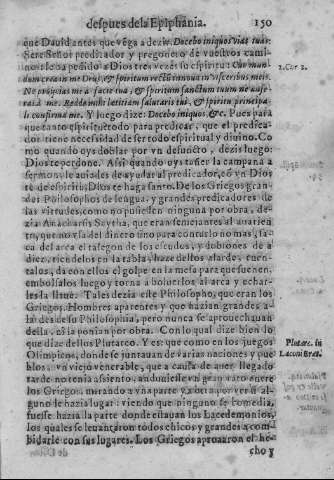 despues de la Epiphania. 150
que Dauid antes que vẽga a dezir. Docebo iniquos vias tuas.
Sere Señor predicador y pregonero de vuestros cami
nos le ha pedido a Dios tres vezes su espiritu: Cor mun
dum crea in me Deus, & spiritum rectũ innoua in visceribus meis.
Ne proijcias me a facie tua, & spiritum sanctum tuum ne aufe
ras a me. Redde mihi lætitiam salutaris tui, & spiritu principa
li confirma me. Y luego dize: Docebo iniquos. &c. Pues para
que tanto espiritu todo para predicar, que el predica-
dor tiene necessidad de ser todo espiritual y diuino. Co
mo quando oys doblar por vn defuncto, dezis luego:
Dios te perdone. Assi quando oys tañer la campana a
sermon, le auiades de ayudar al predicador, cõ vn Dios
te dè espiritu, Dios te haga santo. De los Griegos gran
des Philosophos de lengua, y grandes predicadores de
las virtudes, como no pusiessen ninguna por obra, de-
zia Anacharsis Scytha, que eran semejantes al auarien
to, que no vsa del dinero sino para contarlo no mas, sa-
ca del arca el talegon de los escudos, y doblones de a
diez, tiendelos en la tabla, haze dellos alarde, cuen-
talos, da con ellos el golpe en la mesa para que suenen,
embolsalos luego y torna a boluerlos al arca y echar-
les la llaue. Tales dezia este Philosopho, que eran los
Griegos. Hombres aparentes y que hazian grandes a-
lardes de su Philosophia, pero nunca se aprouechauan
della, ni la ponian por obra. Con lo qual dize bien lo
que dize dellos Plutarco. Y es: que como en los juegos
Olimpicos, donde se juntauan de varias naciones y pue
blos, vn viejo venerable, que a causa de auer llegado
tarde no tenia assiento, anduuiesse vn gran rato entre
los Griegos, mirando a vna parte y a otra por ver si al-
guno le hazia lugar: viendo que ninguno se comedia,
fuesse hazia la parte donde estauan los Lacedemonios,
los quales se leuantaron todos chicos y grandes a com
bidarle con sus lugares. Los Griegos aprouaron el he-
cho y
2. Cor 2.
Plutarc. in
Laconi Breu.